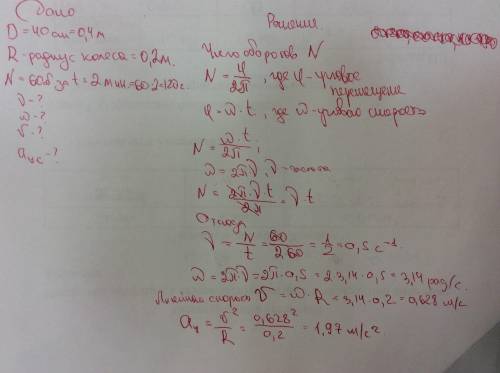 Дано
D = 40 см = 0,4 м
R - радиус колеса = 0,2 м.
N = 60 об за t = 2 мин. = 60·2 = 120 c.
ν - ?
ω - ?
v - ?
aцс - ?
Решение.
Число оборотов N
N = φ/2π, где φ - угловое
перемещение
φ = ω · t, где ω - угловая скорость
N = ω·t/2π;
ω = 2πν, ν - частота
N = 2π·ν·t/2π = ν·t
Отсюда
ν = N/t = 60/2·60 = 1/2 = 0,5 c⁻¹.
ω = 2πν = 2π·0,5 = 2·3,14·0,5 = 3,14 рад/с.
Линейная скорость v = ω·R = 3,14·0,2 = 0,628 м/с
aц = v²/R = 0,628²/0,2 = 1,97 м/с².